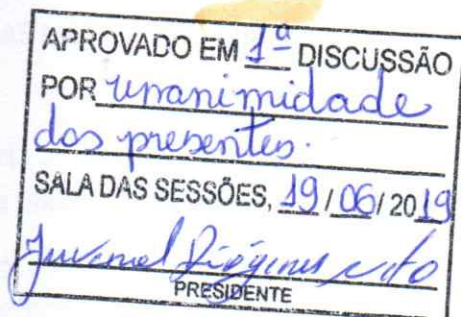 APROVADO EM 1ª DISCUSSÃO
POR unanimidade
dos presentes.
SALA DAS SESSÕES, 19 / 06 / 20 19
Juvenal Diógenes Neto
PRESIDENTE